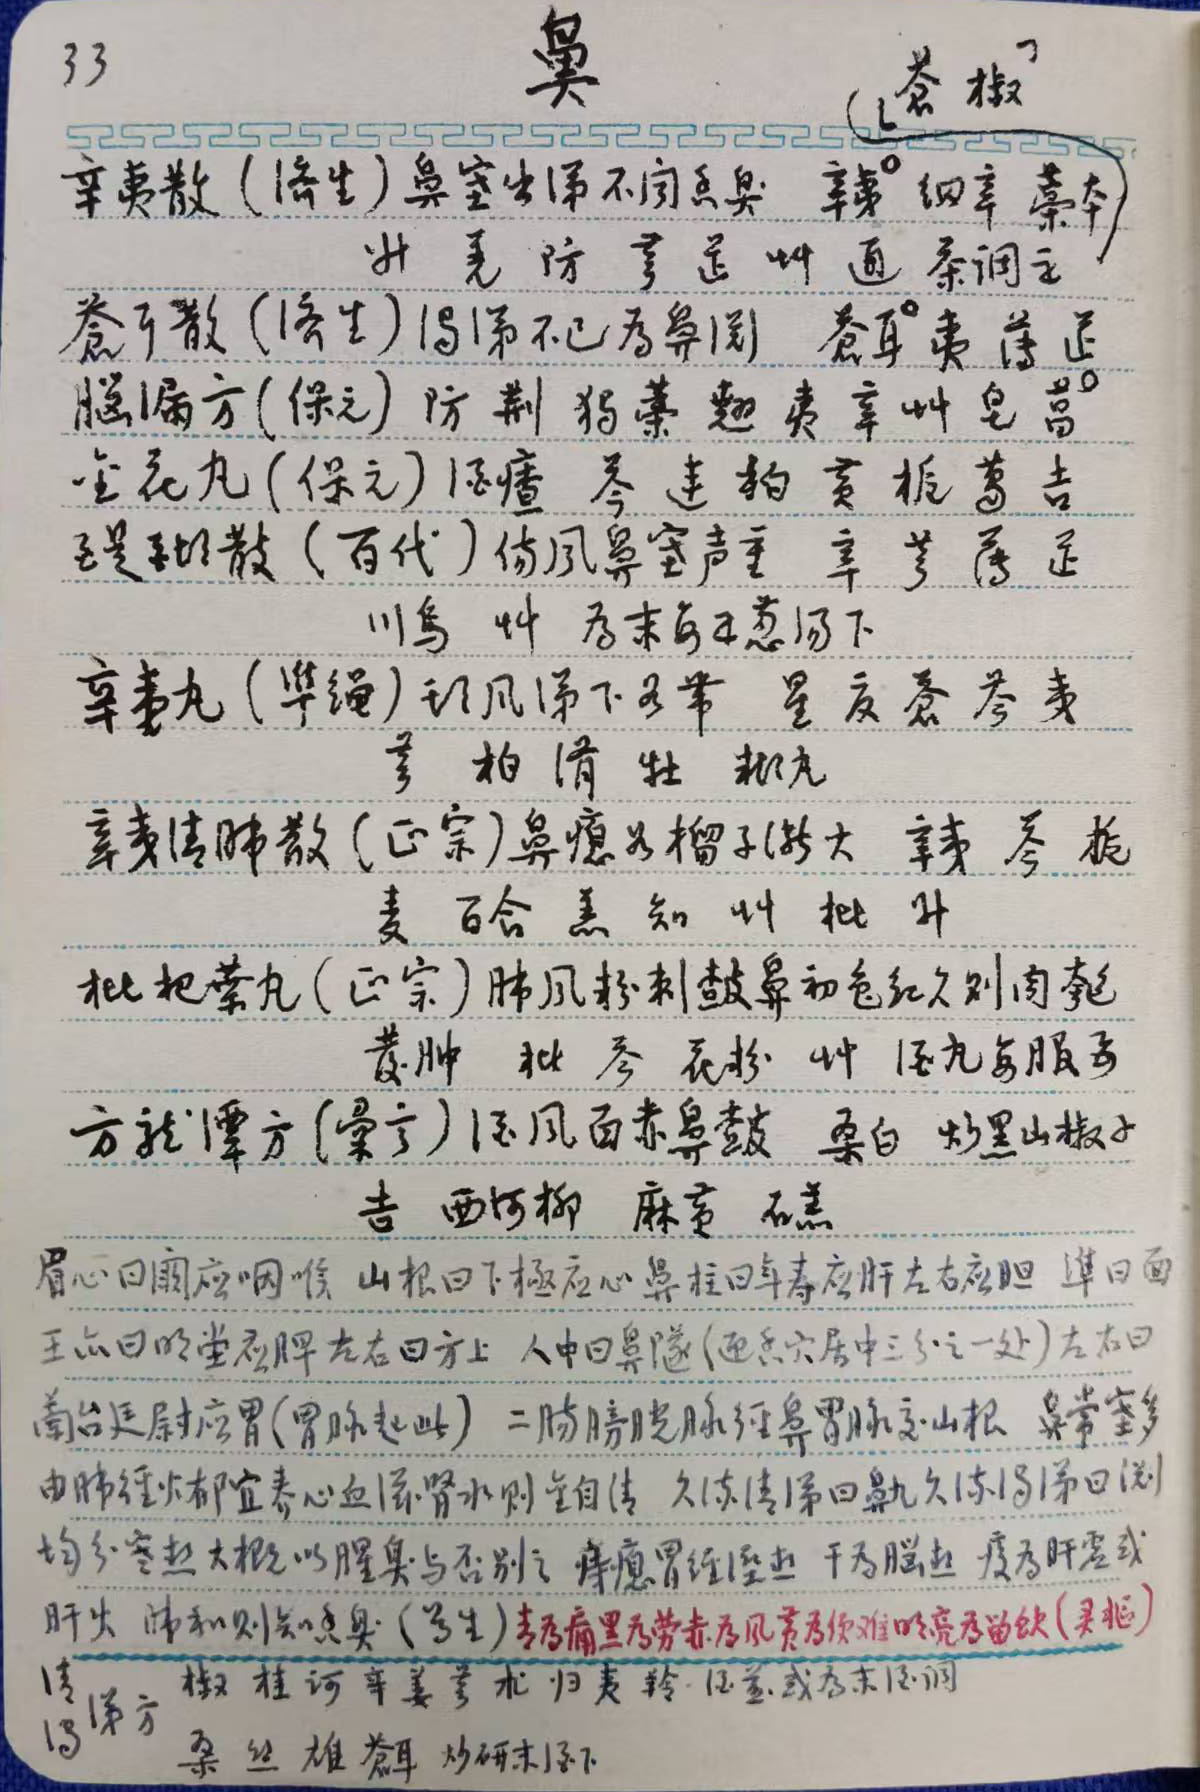 33
鼻
苍椒
辛夷散（济生）鼻塞出涕不闻香臭 辛夷 细辛 藁本
升 羌 防 芎 芷 艸 通 茶调之
苍耳散（济生）浊涕不已为鼻渊 苍耳 夷 薄 芷
脑漏方（保元）防 荆 独 藁 翘 夷 辛 艸 皂 菖
金花丸（保元）酒齄 芩 连 柏 黄 栀 葛 吉
散（百代）伤风鼻塞声重 辛 芎 薄 芷
川乌 艸 为末每 葱汤下
辛夷丸（準绳）头风涕下如带 星 夏 苍 芩 夷
芎 柏 滑 牡 糊丸
辛夷清肺散（正宗）鼻瘜如榴子渐大 辛夷 芩 栀
麦 百合 羔 知 艸 枇 升
枇杷叶丸（正宗）肺风粉刺鼓鼻初色红久则肉匏
发肿 枇 芩 花粉 艸 酒丸每服
方龙潭方（汇言）酒风面赤鼻鼓 桑白 炒黑山椒子
吉 西河柳 麻黄 石羔
眉心曰阙应咽喉 山根曰下极应心 鼻柱曰年寿应肝左右应胆 準曰面
王亦曰明堂应脾左右曰方上 人中曰鼻隧（迎香穴居中三分之一处）左右曰
兰台廷尉应胃（胃脉起此） 二肠膀胱脉经鼻胃脉交山根 鼻常塞多
由肺经火郁宜养心血滋肾水则金自清 久流清涕曰鼽久流浊涕曰渊
均分寒热大概以腥臭与否别之 痔瘜胃经湿热 干为脑热 痠为肝虚或
肝火 肺和则知香臭（学生）青为痛黑为劳赤为风黄为便难明亮为留饮（灵枢）
清浊涕方
椒 桂 诃 辛 姜 芎 术 归 夷 羚 酒 或为末酒调
桑 丝 雄 苍耳 炒研末酒下